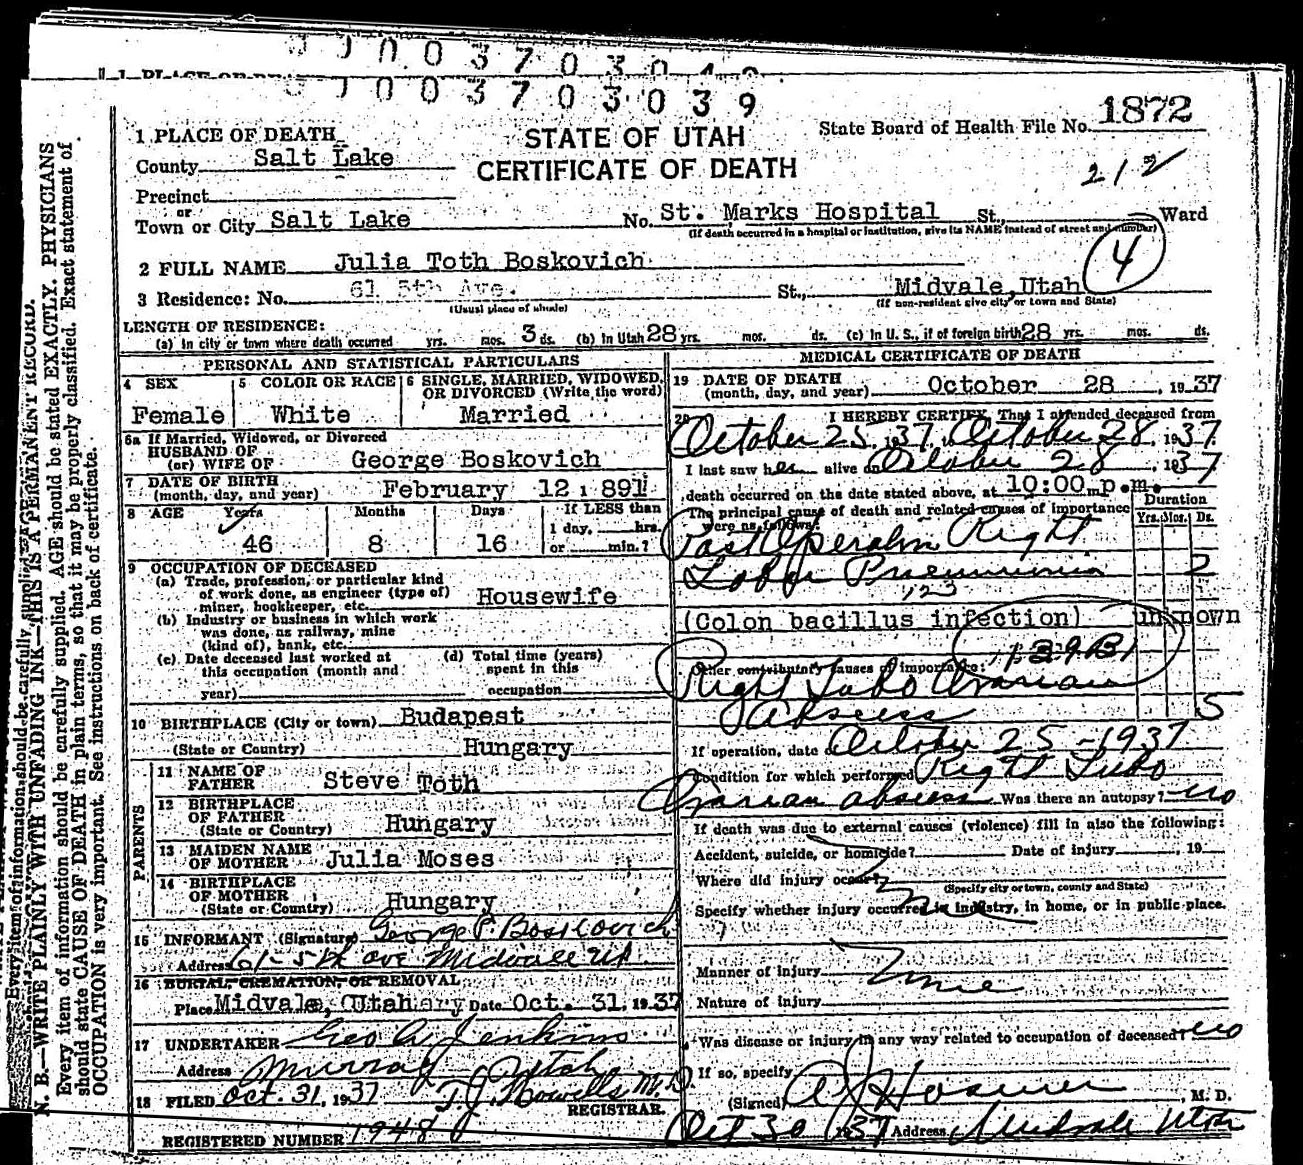 0003703039
1 PLACE OF DEATH
STATE OF UTAH
CERTIFICATE OF DEATH
State Board of Health File No. 1872
212
County Salt Lake
Precinct
or
Town or City Salt Lake No. St. Marks Hospital St., Ward
(If death occurred in a hospital or institution, give its NAME instead of street and number)
4
2 FULL NAME Julia Toth Boskovich
3 Residence: No. 61 5th Ave. St., Midvale, Utah
(Usual place of abode) (If non-resident give city or town and State)
LENGTH OF RESIDENCE:
(a) In city or town where death occurred yrs. mos. 3 ds. (b) In Utah 28 yrs. mos. ds. (c) In U. S., if of foreign birth 28 yrs. mos. ds.
PERSONAL AND STATISTICAL PARTICULARS
4 SEX Female
5 COLOR OR RACE White
6 SINGLE, MARRIED, WIDOWED, OR DIVORCED (Write the word) Married
6a If Married, Widowed, or Divorced
HUSBAND OF
(or) WIFE OF George Boskovich
7 DATE OF BIRTH
(month, day, and year) February 12 1891
8 AGE Years Months Days If LESS than
1 day, hrs.
46 8 16 or min.?
9 OCCUPATION OF DECEASED
(a) Trade, profession, or particular kind
of work done, as engineer (type of)
miner, bookkeeper, etc. Housewife
(b) Industry or business in which work
was done, as railway, mine
(kind of), bank, etc.
(c) Date deceased last worked at
this occupation (month and
year)
(d) Total time (years)
spent in this
occupation
10 BIRTHPLACE (City or town) Budapest
(State or Country) Hungary
PARENTS
11 NAME OF
FATHER Steve Toth
12 BIRTHPLACE
OF FATHER
(State or Country) Hungary
13 MAIDEN NAME
OF MOTHER Julia Moses
14 BIRTHPLACE
OF MOTHER
(State or Country) Hungary
15 INFORMANT (Signature) George P. Boskovich
Address 61-5th ave Midvale Ut
16 BURIAL, CREMATION, OR REMOVAL
Place Midvale, Utah Date Oct. 31, 1937
17 UNDERTAKER Geo A Jenkins
Address Murray Utah
18 FILED Oct. 31, 1937 T. J. Howells M.D.
REGISTRAR.
REGISTERED NUMBER 1948
MEDICAL CERTIFICATE OF DEATH
19 DATE OF DEATH
(month, day, and year) October 28, 1937
20 I HEREBY CERTIFY, That I attended deceased from
October 25, 1937, October 28, 1937.
I last saw her alive on October 28, 1937
death occurred on the date stated above, at 10:00 p.m.
The principal cause of death and related causes of importance
were as follows:
Duration
Yrs. Mos. Ds.
Post Operation Right
Lobar Pneumonia 2
123
(Colon bacillus infection) unknown
139B
Other contributory causes of importance:
Right Tubo Ovarian
Abscess 5
If operation, date of October 25-1937
Condition for which performed Right Tubo
Ovarian abscess Was there an autopsy? no
If death was due to external causes (violence) fill in also the following:
Accident, suicide, or homicide? Date of injury , 19
Where did injury occur?
(Specify city or town, county and State)
Specify whether injury occurred in industry, in home, or in public place.
Manner of injury None
Nature of injury
Was disease or injury in any way related to occupation of deceased? no
If so, specify
(Signed) A J Hosmer, M. D.
Oct 30 1937 Address Midvale Utah
N. B.—WRITE PLAINLY WITH UNFADING INK—THIS IS A PERMANENT RECORD.
Every item of information should be carefully supplied. AGE should be stated EXACTLY. PHYSICIANS
should state CAUSE OF DEATH in plain terms, so that it may be properly classified. Exact statement of
OCCUPATION is very important. See instructions on back of certificate.